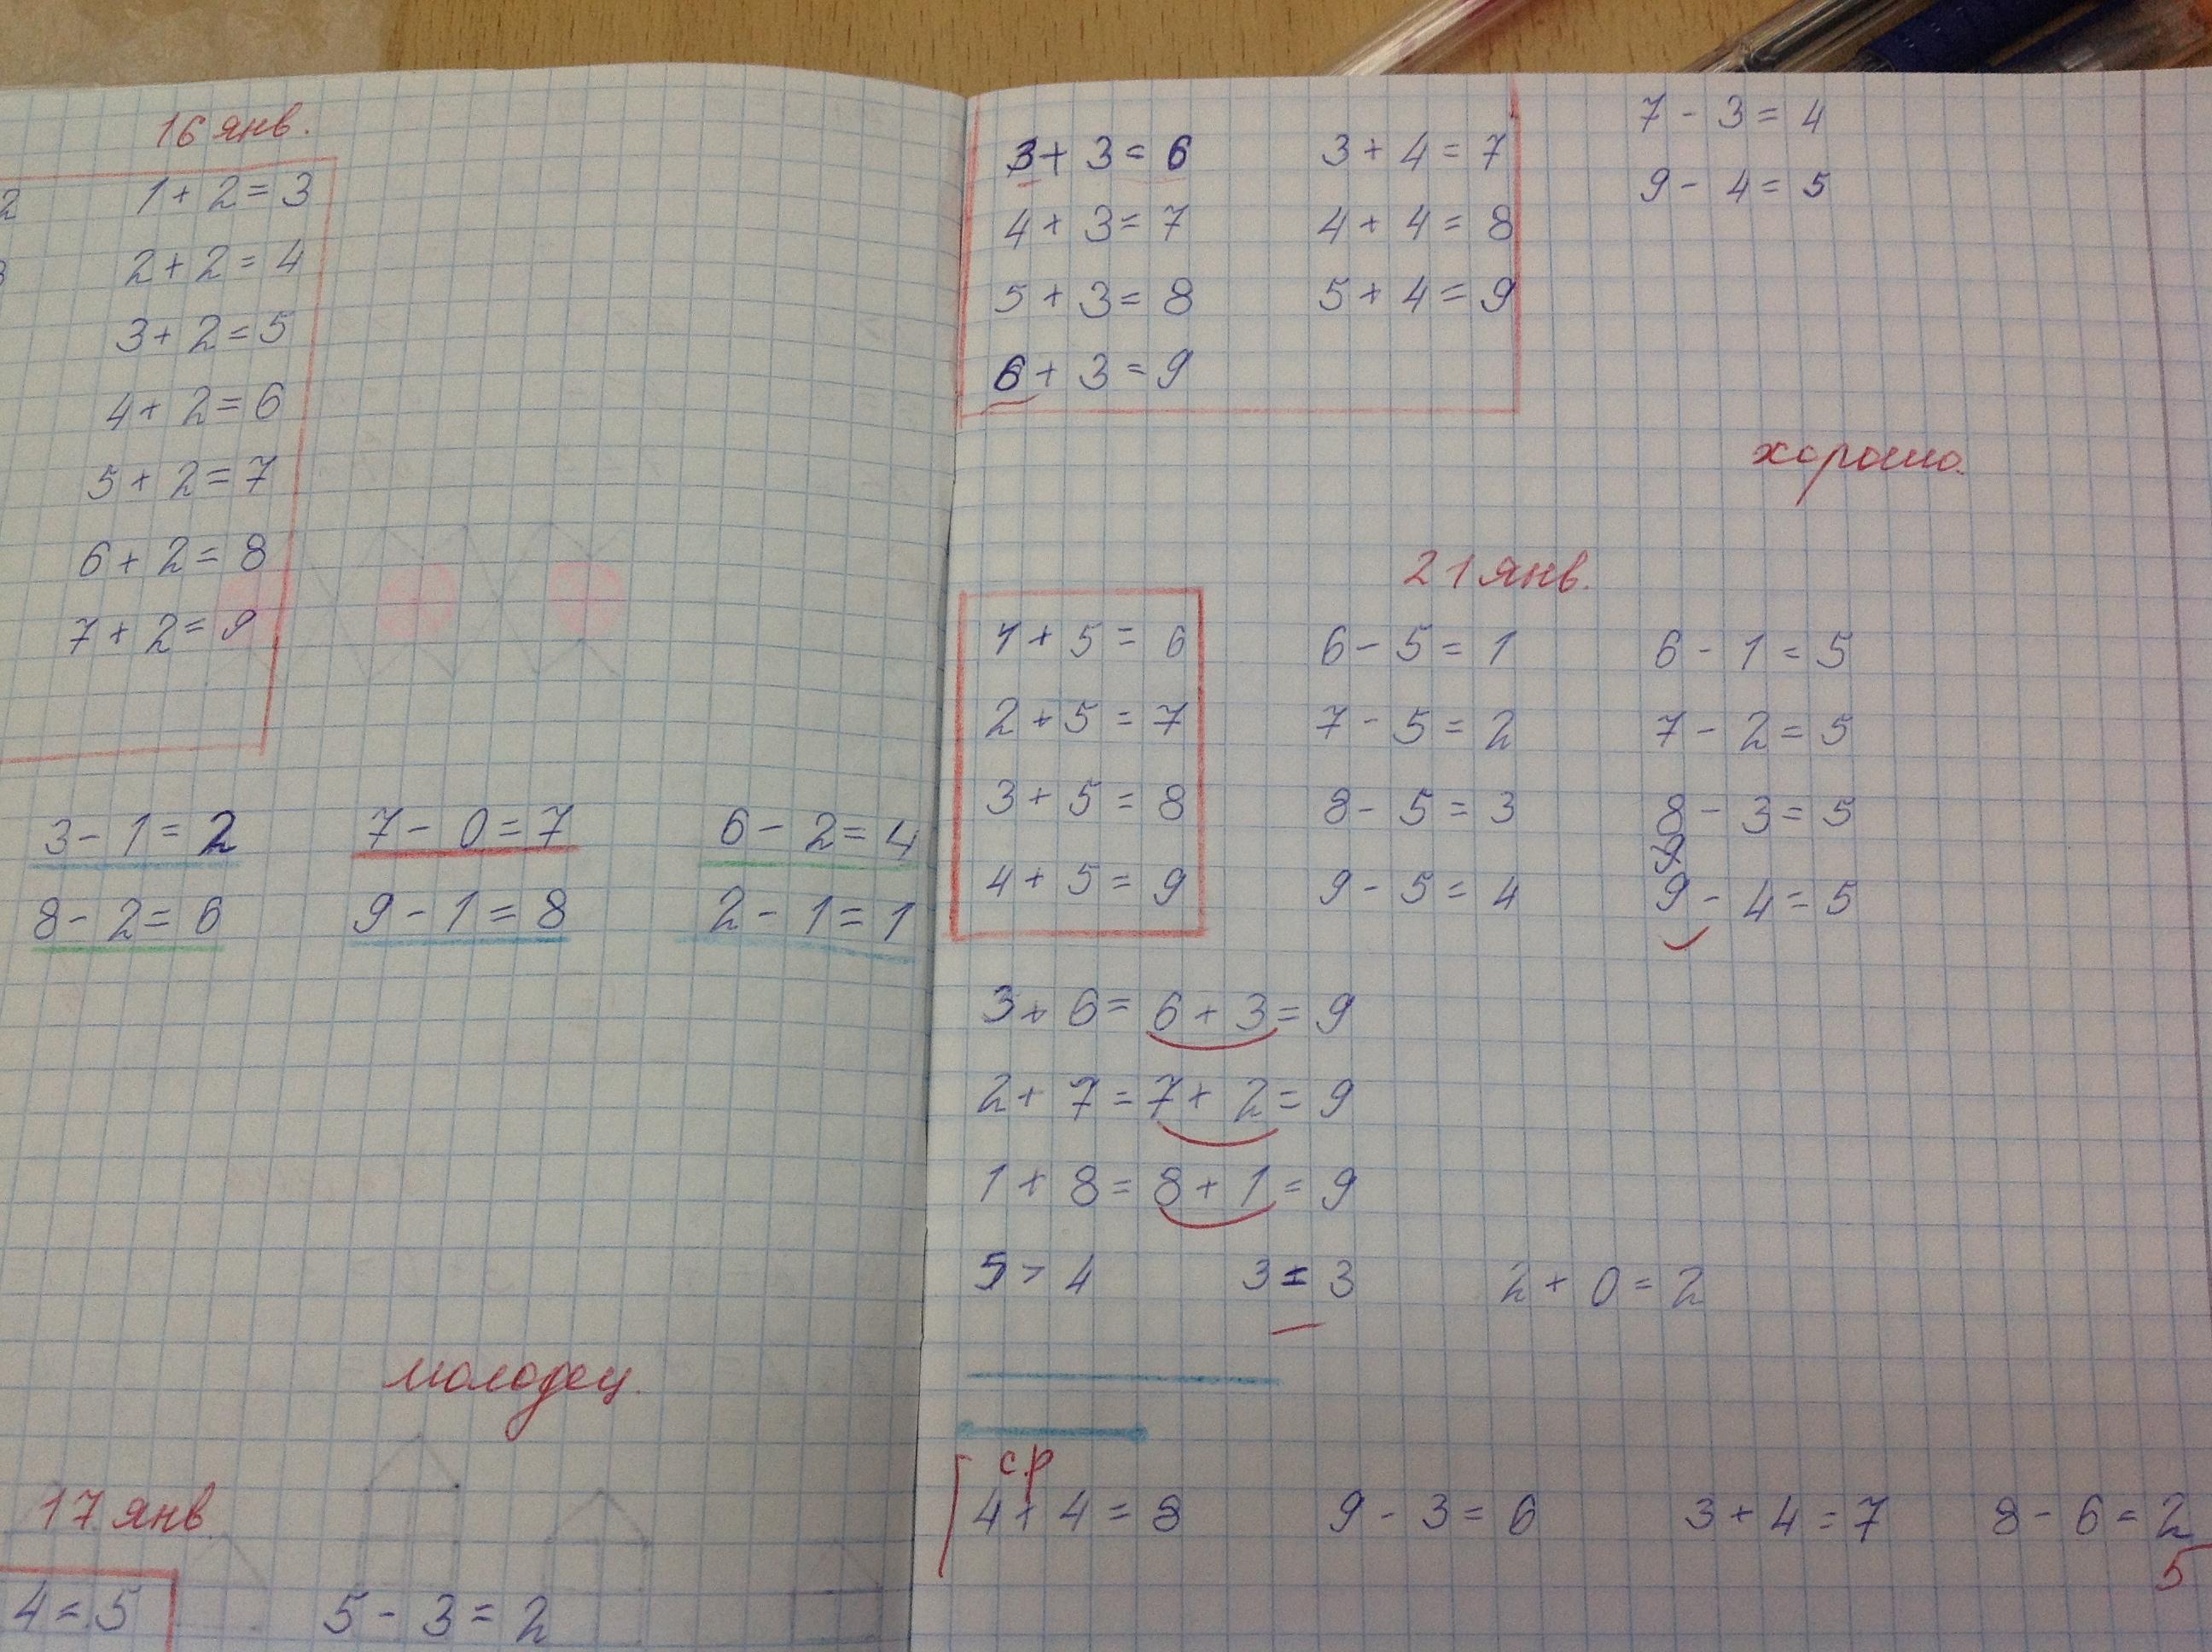 16 янв.
2 1 + 2 = 3
3 2 + 2 = 4
3 + 2 = 5
4 + 2 = 6
5 + 2 = 7
6 + 2 = 8
7 + 2 = 9
3 - 1 = 2 7 - 0 = 7 6 - 2 = 4
8 - 2 = 6 9 - 1 = 8 2 - 1 = 1
молодец.
17 янв.
4 = 5 5 - 3 = 2
3 + 3 = 6 3 + 4 = 7 7 - 3 = 4
4 + 3 = 7 4 + 4 = 8 9 - 4 = 5
5 + 3 = 8 5 + 4 = 9
6 + 3 = 9
хорошо.
21 янв.
1 + 5 = 6 6 - 5 = 1 6 - 1 = 5
2 + 5 = 7 7 - 5 = 2 7 - 2 = 5
3 + 5 = 8 8 - 5 = 3 8 - 3 = 5
4 + 5 = 9 9 - 5 = 4 9 - 4 = 5
3 + 6 = 6 + 3 = 9
2 + 7 = 7 + 2 = 9
1 + 8 = 8 + 1 = 9
5 > 4 3 = 3 2 + 0 = 2
с.р
4 + 4 = 8 9 - 3 = 6 3 + 4 = 7 8 - 6 = 2
5